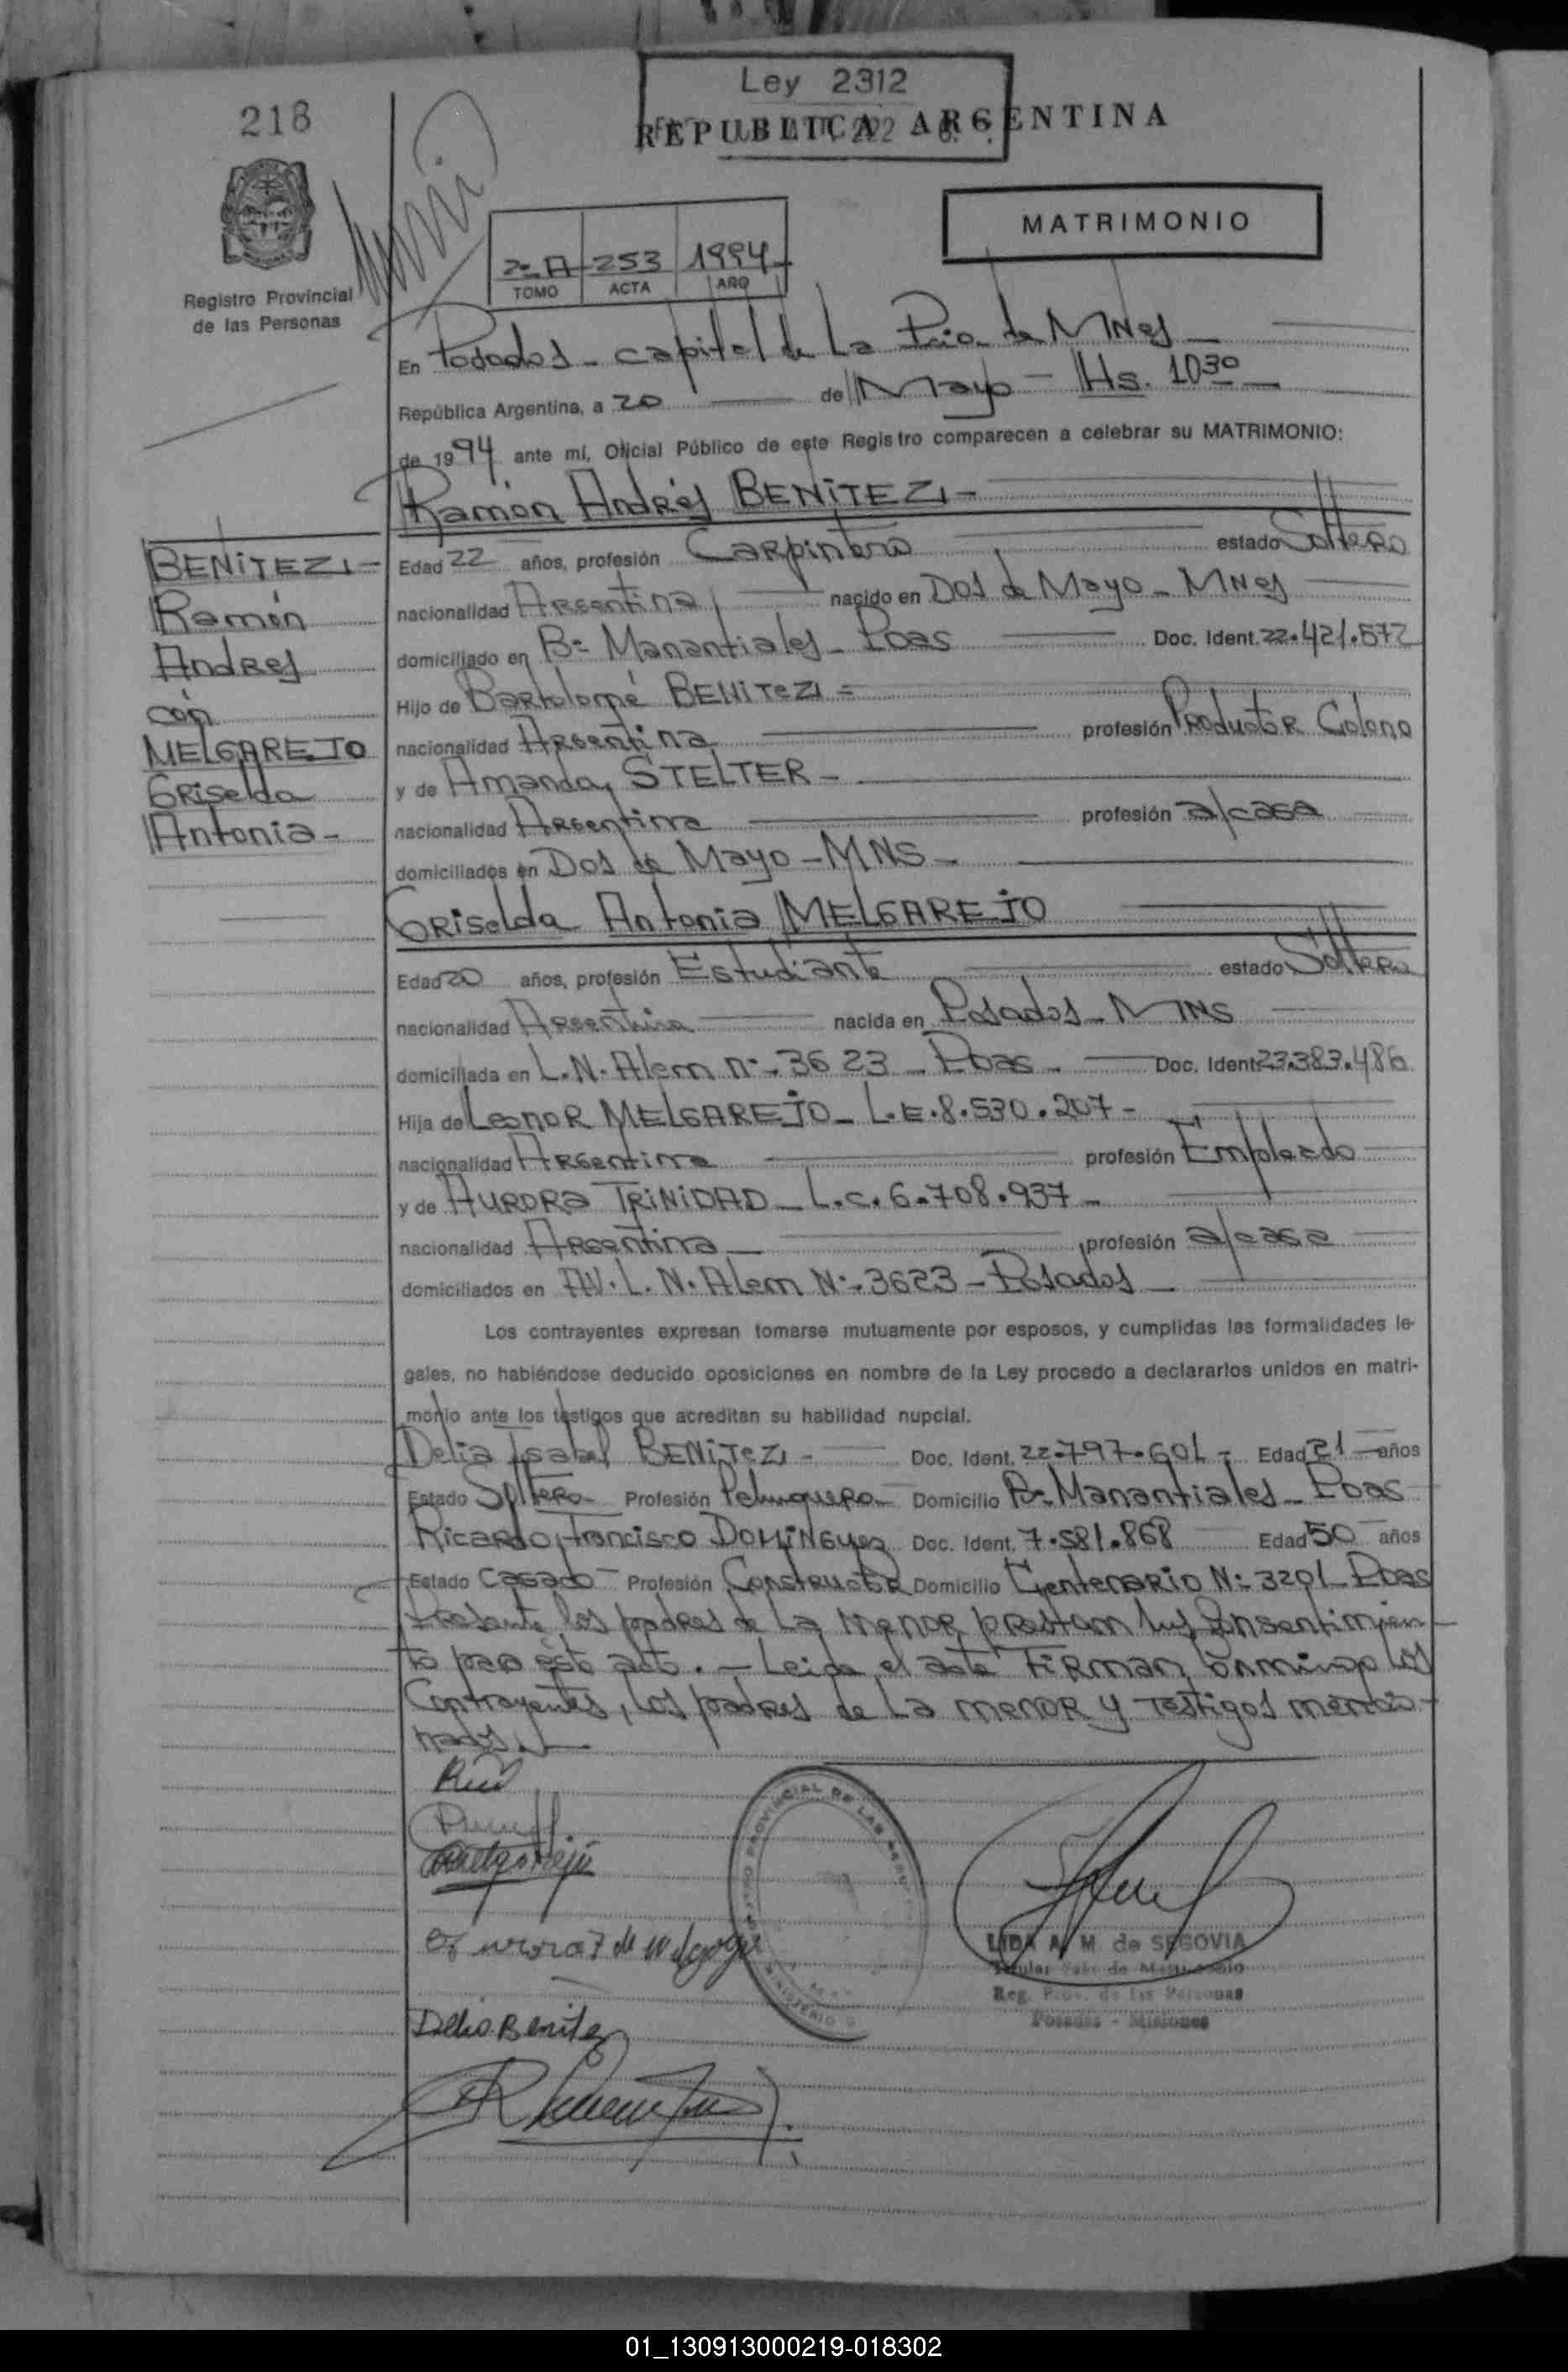 218
Ley 2312
REPUBLICA ARGENTINA
MATRIMONIO
2º A 253 1994
TOMO ACTA AÑO
Registro Provincial
de las Personas
En Posadas - capital de La Pcia de MNes
República Argentina, a 20 de Mayo - Hs. 10³⁰
de 1994 ante mí, Oficial Público de este Registro comparecen a celebrar su MATRIMONIO:
Ramón Andrés BENITEZ
BENITEZ
Ramón
Andres
con
MELGAREJO
Griselda
Antonia -
Edad 22 años, profesión Carpintero estado Soltero
nacionalidad Argentina nacido en Dos de Mayo - MNes
domiciliado en Bº Manantiales - Pdas Doc. Ident. 22.421.572
Hijo de Bartolomé BENITEZ
nacionalidad Argentina profesión Productor Colono
y de Amanda STELTER -
nacionalidad Argentina profesión a/casa
domiciliados en Dos de Mayo - MNS -
Griselda Antonia MELGAREJO
Edad 20 años, profesión Estudiante estado Soltera
nacionalidad Argentina nacida en Posadas - MNS
domiciliada en L.N. Alem nº 3623 - Pdas - Doc. Ident. 23.383.486
Hija de Leonor MELGAREJO - L.E. 8.530.207 -
nacionalidad Argentina profesión Empleado
y de AURORA TRINIDAD - L.C. 6.708.937 -
nacionalidad Argentina profesión a/casa
domiciliados en AV. L. N. Alem Nº 3623 - Posadas
Los contrayentes expresan tomarse mutuamente por esposos, y cumplidas las formalidades le-
gales, no habiéndose deducido oposiciones en nombre de la Ley procedo a declararlos unidos en matri-
monio ante los testigos que acreditan su habilidad nupcial.
Delia Isabel BENITEZ - Doc. Ident. 22.797.601 - Edad 21 años
Estado Soltera Profesión Peluquera Domicilio Bº Manantiales - Pdas
Ricardo Francisco DOMINGUEZ Doc. Ident. 7.581.868 Edad 50 años
Estado Casado Profesión Constructor Domicilio Centenario Nº 3201 Pdas
Presente los padres de La menor prestam sus Consentimien-
to para este acto. - Leida el acta Firman conmigo Los
Contrayentes, los padres de La menor y Testigos mencio-
nados.
Melgarejo
Delia Benitez
LIDA A. M. de SEGOVIA
Reg. Prov. de las Personas
Posadas - Misiones
01_130913000219-018302